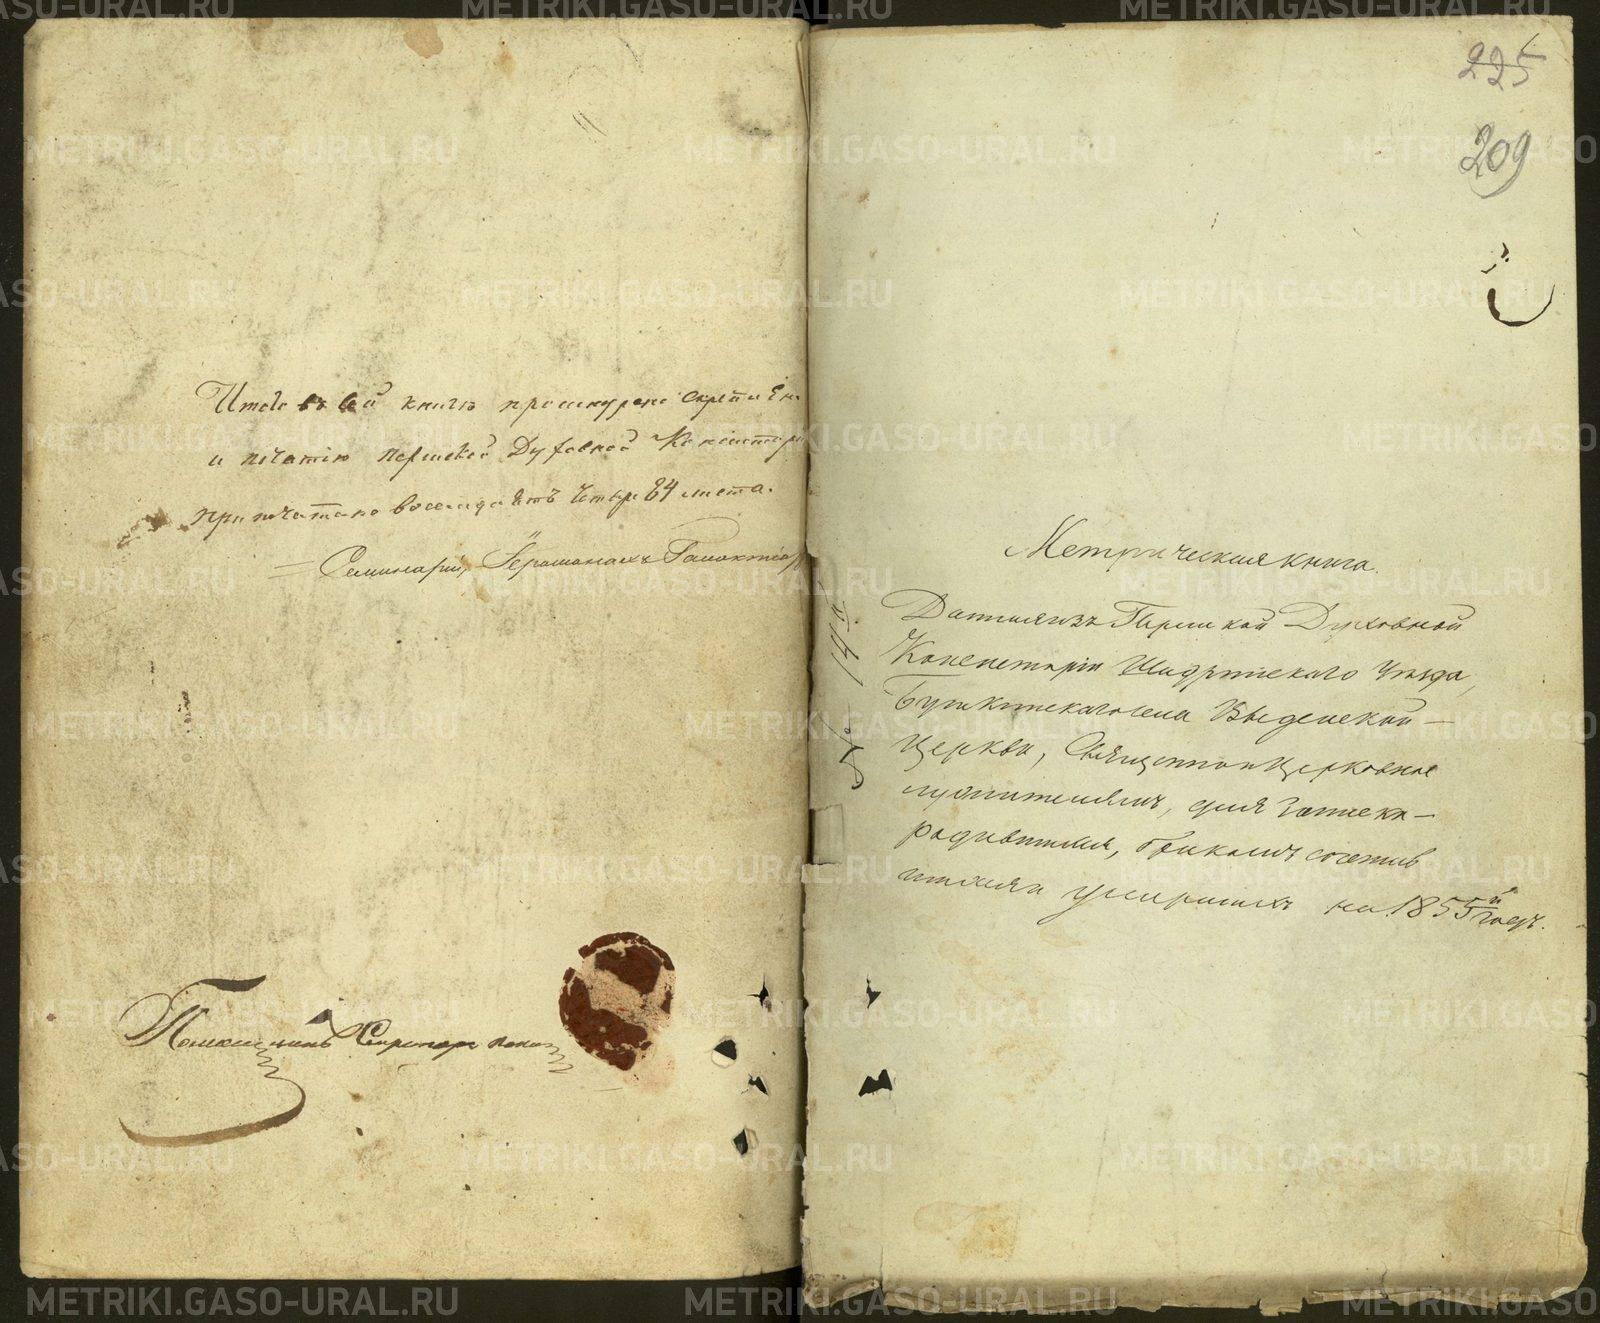 Итого въ сей книгѣ прошнурено скрѣплено
и печатію Пермской Духовной Консисторіи
припечатано восемдесятъ четыре 84 листа.
Семинаріи, Іеромонахъ
Секретарь
225
209
Метрическая книга.
Данная изъ Пермской Духовной
Консисторіи Шадринскаго Уѣзда,
села Введенской
церкви, Священно и церковно
служителямъ, для записки
родившихся, бракомъ сочетав
шихся и умершихъ на 1855й годъ.
METRIKI.GASO-URAL.RU